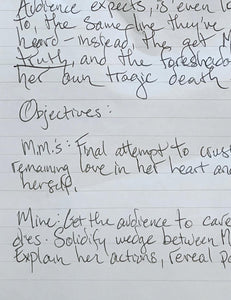 Audience expects, is even l
to, the same line they've
heard - instead, the get M
truth, and the foreshado
her own tragic death
Objectives:
M.M.'s: Final attempt to crus
remaining love in her heart and
herself.
Mine: Get the audience to care
dies. Solidify wedge between M
Explain her actions, reveal pa